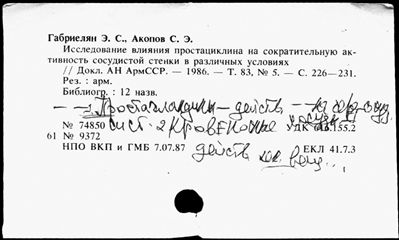 Габриелян Э. С., Акопов С. Э.
Исследование влияния простациклина на сократительную ак-
тивность сосудистой стенки в различных условиях
// Докл. АН АрмССР. — 1986. — Т. 83, № 5. — С. 226—231.
Рез. : арм.
Библиогр. : 12 назв.
— Простагландины — действ —
№ 74850 сист. 2 кровеносные сосуды УДК 155.2
61 № 9372
НПО ВКП и ГМБ 7.07.87 действ ЕКЛ 41.7.3